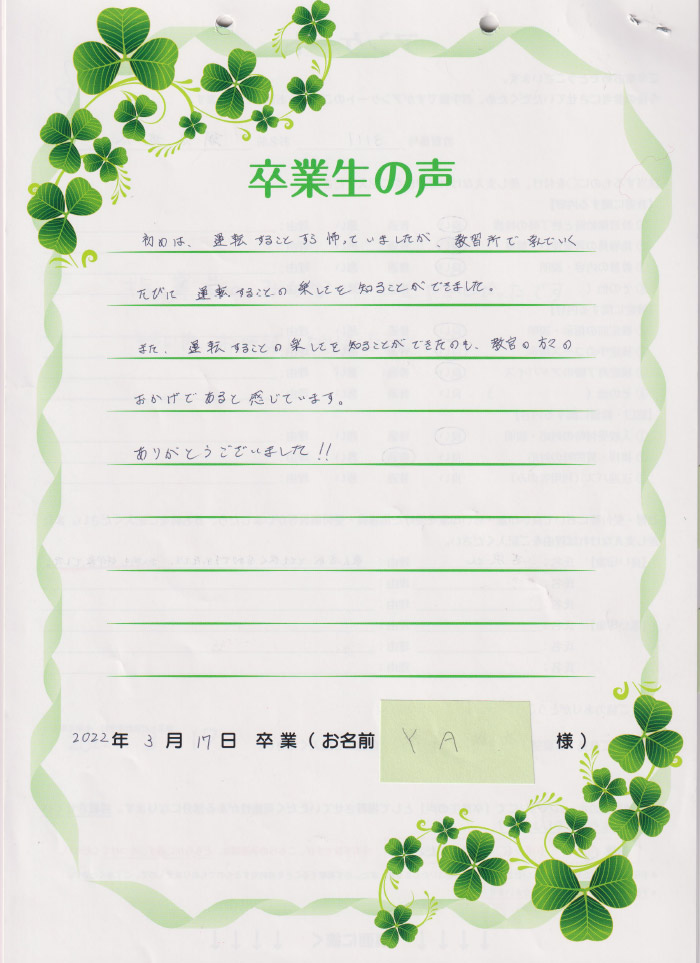 卒業生の声
初めは、運転することすら怖っていましたが、教習所で学んでいく
たびに 運転することの楽しさを知ることができました。
また、運転することの楽しさを知ることができたのも、教官の方々の
おかげであると感じています。
ありがとうございました!!
2022年 3月 17日 卒業(お名前 YA 様)